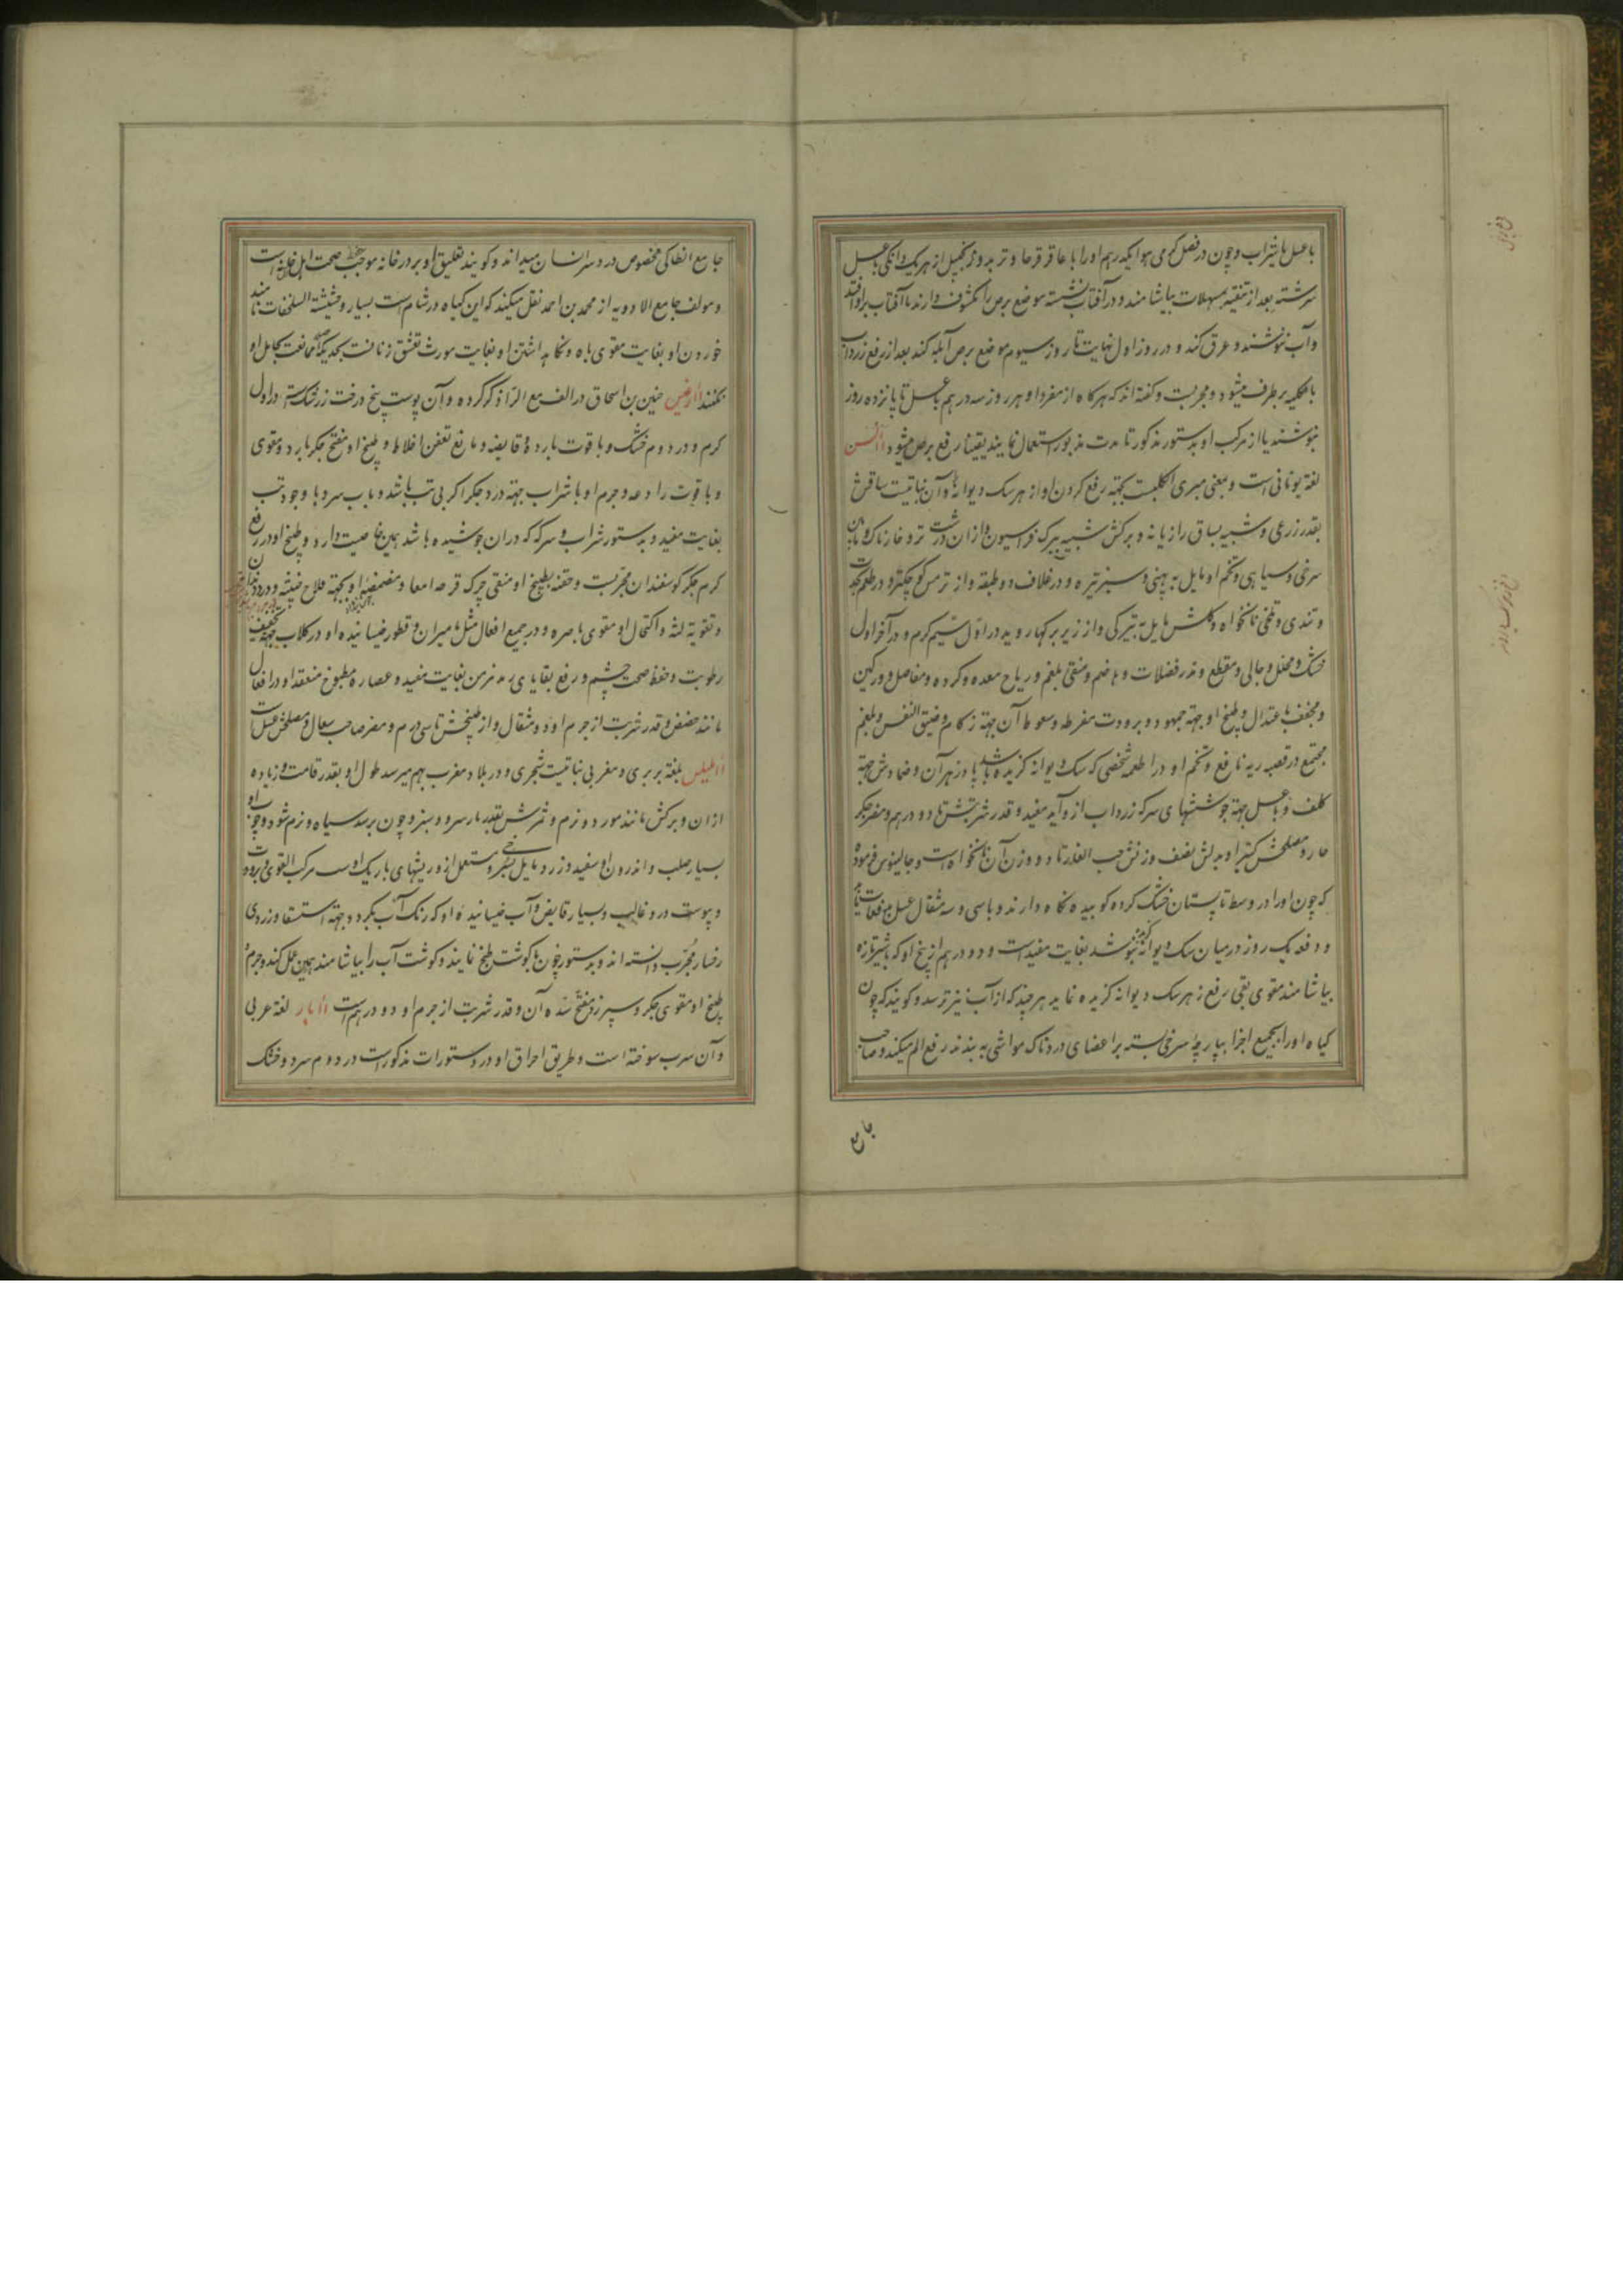 با عسل یا شراب و چون در فصل گرمی هوا یکدرهم او را با عاقرقرحا و تربد و زنجبیل از هر یک دانکی با عسل
سرشته بعد از تنقیه بمسهلات بیاشامند و در آفتاب نشسته موضع برص را مکشوف دارند تا آفتاب بر او افتد
و آب ننوشند و عرق کند و در روز اول نهایت تا روز سیوم موضع برص آبله کند بعد از رفع زرداب
بالکلیه برطرف میشود و مجربست و کفته اند که هرکاه از مفرد او هر روز سه درهم با عسل تا پانزده روز
بنوشند یا از مرکب او بدستور مذکور تا مدت مذبور استعمال نمایند یقینا رفع برص میشود آالسن
لغة یونانی است و بمعنی مبری الکلبست بجهة رفع کردن او از هر سک دیوانه و آن نباتیست ساقش
بقدر زرعی و شبیه بساق رازیانه و برکش شبیه ببرک فراسیون و از ان درشت تر و خارناک و مابین
سرخی و سیاهی و تخم او مایل به پهنی و سبز تیره و در غلاف دو طبقه و از ترمس کوچکتر و در طعم
و تندی و تلخی نانخواه و کلش مایل به تیرکی و از زیر برکها روید در اول سیم کرم و در آخر اول
خشک و محلل و جالی و مقطع و مدر فضلات و هاضم و منقی بلغم و ریاح معده و کرده و مفاصل و ورکین
و مجفف باعتدال و طبیخ او جهة جمود و برودت مفرطه و سعوط آن جهة زکام و ضیق النفس و بلغم
مجتمع در قصبه ریه نافع و تخم او در اطعمه شخصی که سک دیوانه کزیده باشد پادزهر آن و ضمادش جهة
کلف و با عسل جهة جوششهای سر که زرداب از و آید مفید و قدر شربتش تا دو درهم و مضر جکر
حار و مصلحش کتیرا و بدلش نصف وزنش حب الغار تا دو وزن آن نانخواه است و جالینوس فرموده
که چون او را در وسط تابستان خشک کرده کوبیده نکاه دارند و با سی و سه مثقال عسل
و دفعه یک روز در میان سک دیوانه کزیده بنوشد بغایت مفیدست و دو درهم از بیخ او که با شیر تازه
بیاشامند مقوی بقی رفع زهر سک دیوانه کزیده نماید هر چند که از آب نیز ترسد و کویند که چون
کیاه او را بجمیع اجزا بپارچه سرخی بسته بر اعضای دردناک مواشی به بندند رفع الم میکند و صاحب
جامع
جامع انطاکی مخصوص درد سر انسان میداند و کویند تعلیق او بر در خانه موجب حفظ صحت اهل خانه است
و مولف جامع الادویه از محمد بن احمد نقل میکند که این کیاه در شام است بسیار و حشیشة السلحفات نامند
خوردن او بغایت مقوی باه و نکاهداشتن او بغایت مورث تعشق زنانست بحدیکه ممانعت بحامل او
نکنند اارغیس حنین بن اسحاق در الف مع الرا ذکر کرده و آن پوست بیخ درخت زرشکست در اول
کرم و در دوم خشک و با قوت بارده قابضه و مانع تعفن اخلاط و طبیخ او مفتح جکر بارد و مقوی
و با قوت رادعه و جرم او با شراب جهة درد جکر اکر بی تب باشد و با آب سرد با وجود تب
بغایت مفید و بدستور شراب و سرکه که دران جوشیده باشد همین خاصیت دارد و طبیخ او در رفع
کرم جکر کوسفندان مجربست و حقنه بطبیخ او منقی چرک قرحه امعا و مضمضه او بجهة قلاع خبیثه و درد دندان
و تقویة لثه و اکتحال او مقوی باصره و در جمیع افعال مثل مامیران و قطور خیسانیده او در کلاب جهة تجفیف
رطوبت و حفظ صحت چشم و رفع بقایای رمد مزمن بغایت مفید و عصاره مطبوخ منعقد او در افعال
مانند حضض و قدر شربت از جرم او دو مثقال و از طبیخش تا سی درم و مضر صاحب سعال و مصلحش عسل است
ااطیلس بلغة بربری و مغربی نباتیست شجری و در بلاد مغرب بهم میرسد طول او بقدر قامت و زیاده
ازان و برکش مانند مورد و نرم و ثمرش بقدر مارسرو و سبز و چون برسد سیاه و نرم شود و چوب او
بسیار صلب و اندرون او سفید و زرد و مایل بسرخی و مستعمل ازو ریشهای باریک اوست مرکب القوی و برودت
و یبوست درو غالب و بسیار قابض و آب خیسانیده او که رنک آب بکردد جهة استسقا و زردی
رخسار مجرب دانسته اند و بدستور چون با کوشت طبخ نمایند و کوشت آب را بیاشامند همین عمل کند و جرم و
طبیخ او مقوی جکر و سپرز و مفتح سده آن و قدر شربت از جرم او دو درهم است اابار لغة عربی
و آن سرب سوخته است و طریق احراق او در دستورات مذکورست در دوم سرد و خشک